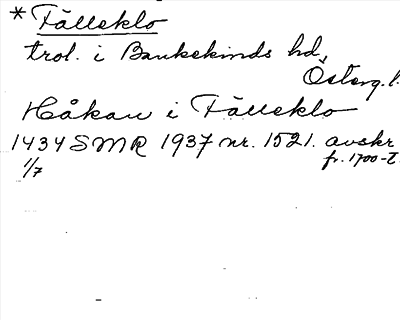 * Fälleklo
trol. i Bankekinds hd,
Österg.l.
Håkan i Fälleklo
1434 SMR 1937 nr. 1521. avskr
1/7 fr. 1700-t.